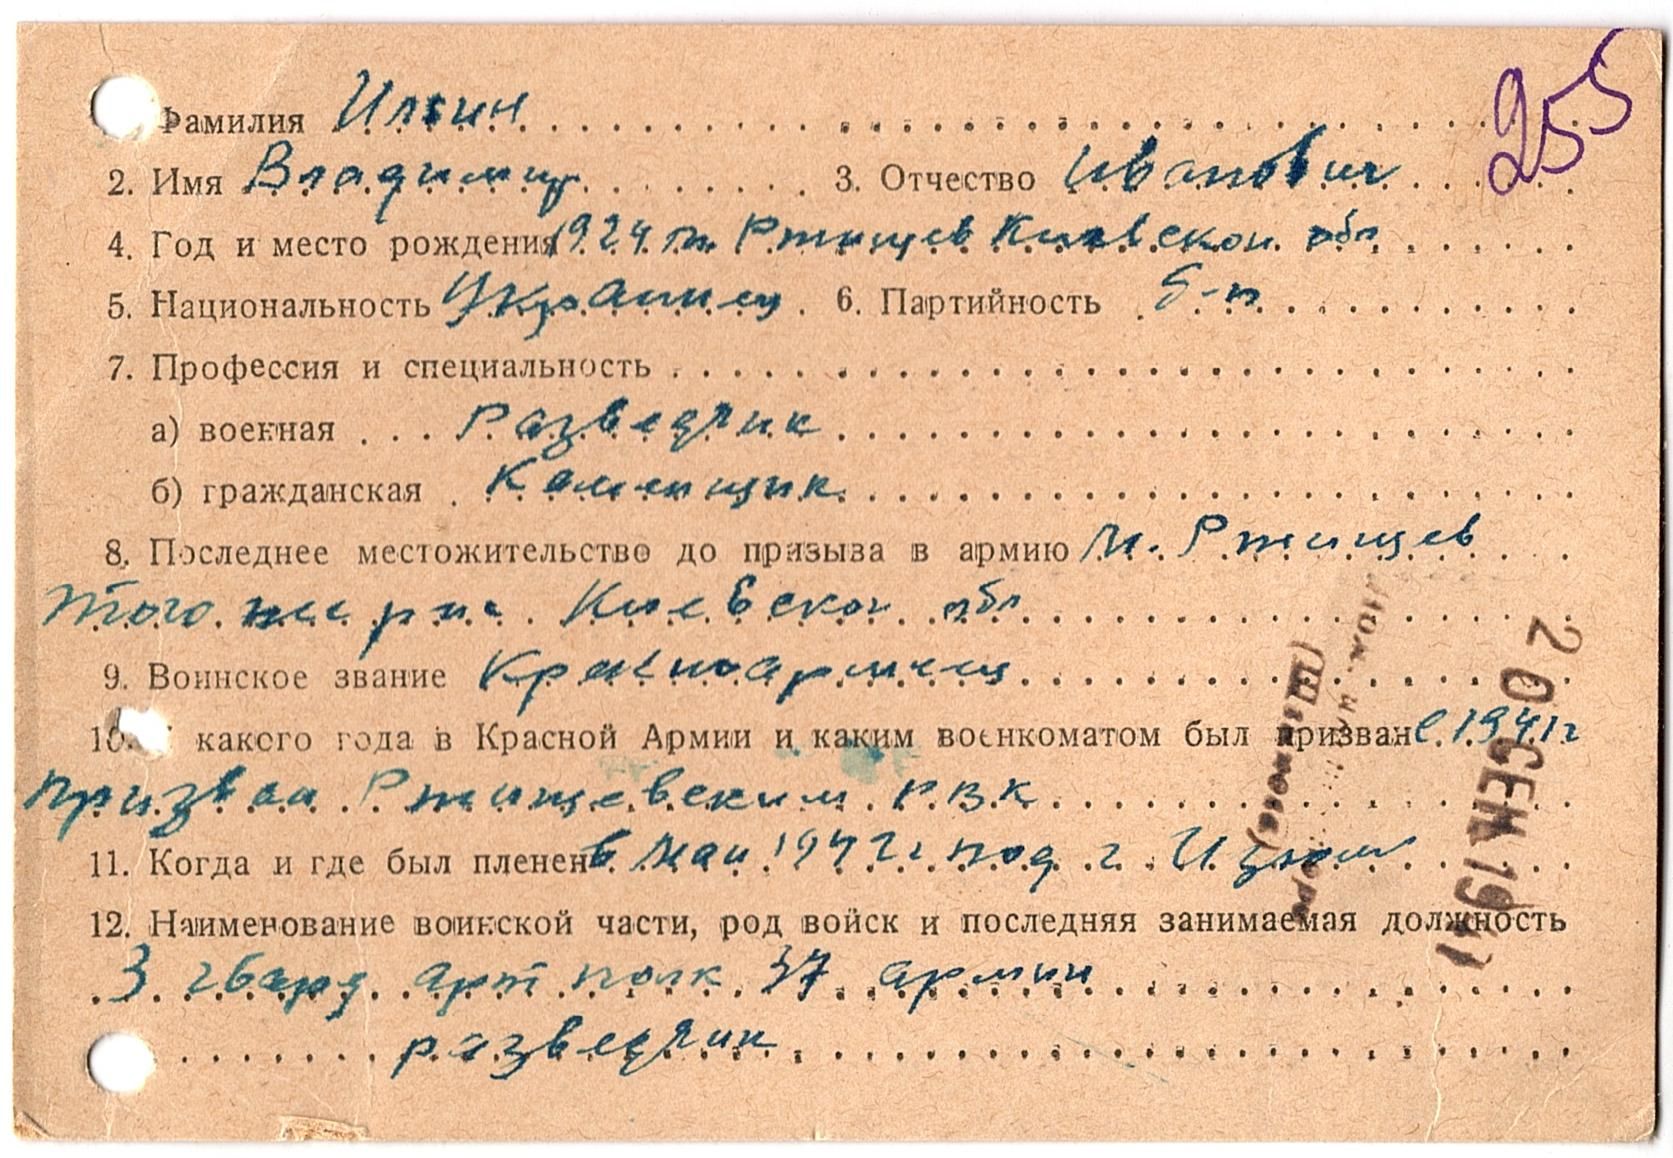 255
Фамилия Ильин
2. Имя Владимир 3. Отчество Иванович
4. Год и место рождения 1924 м. Ртищев Киевской обл
5. Национальность Украинец 6. Партийность б-п
7. Профессия и специальность
а) военная разведчик
б) гражданская Каменщик
8. Последнее местожительство до призыва в армию м. Ртищев
того же р-на Киевской обл
9. Воинское звание Красноармеец
10. какого года в Красной Армии и каким военкоматом был призван с 1941 г
призван Ртищевским РВК
11. Когда и где был пленен в мае 1942 г под г. Изюм
12. Наименование воинской части, род войск и последняя занимаемая должность
3 гвард арт полк 37 армии
разведчик
20 СЕН 194